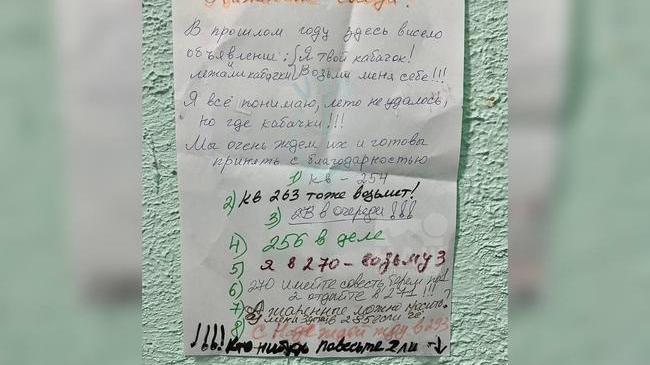 В прошлом году здесь висело
объявление: Я твой кабачок!
лежали кабачки Возьми меня себе!!!
Я всё понимаю, лето не удалось,
но где кабачки!!!
Мы очень ждем их и готовы
принять с благодарностью
1) кв - 254
2) КВ 263 тоже возьмет!
3) 2В в очереди!!!
4) 256 в деле
5) Я в 270 - возьму 3
6) 270 имейте совесть, берем по 1
2 отдайте в 271!!!
7) А жаренные можно носить?
у меня зубов 285 если че,
8 С Надеждой жду в 293
!!!! Кто нибудь повесьте 2 ли